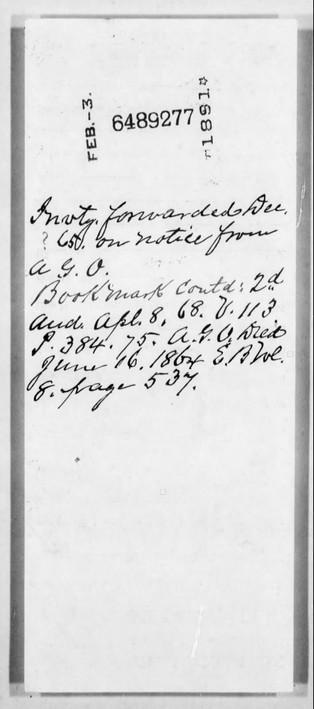 FEB.-3.
6489277
1891
Invty. forwarded Dec.
? 65. on notice from
A G. O.
Bookmark contd: 2d
Aud. Apl. 8, 68. V. 113
P. 384. 75. A. G. O. Died
June 16. 1864 E. B Vol.
8. page 537.